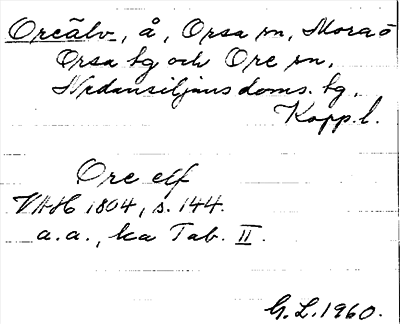 Oreälv, å, Orsa sn, Mora o
Orsa tg och Ore sn,
Nedansiljans doms. tg,
Kopp.l.
Ore elf
VAH 1804, s. 144.
a.a., ka Tab. II.
G.L. 1960.